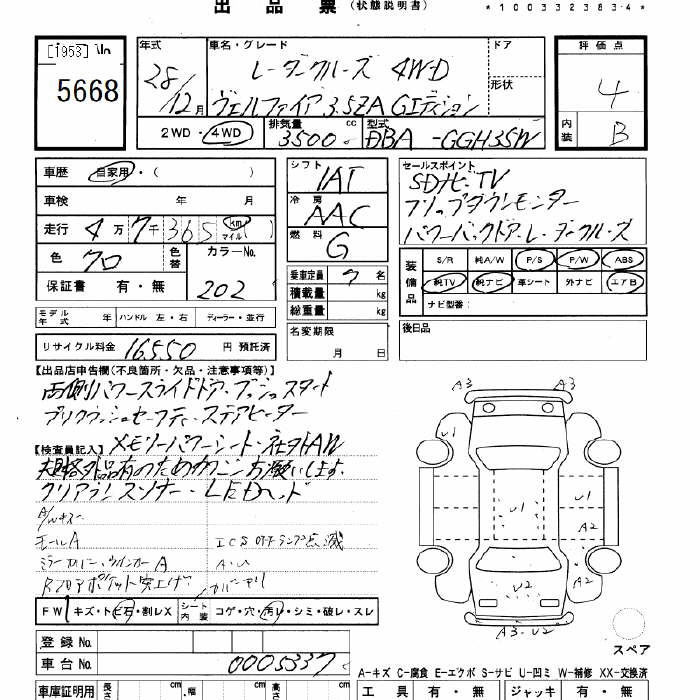 出品票 (状態説明書)
*1003323834*
[1953]
5668
年式 車名・グレード ドア 評価点
28/12月
レーダークルーズ 4WD
形状
4
ヴェルファイア 3.5ZA Gエディション
2WD・4WD 排気量 3500 cc 型式 DBA-GGH35W
内装 B
車歴 自家用・( )
シフト IAT
セールスポイント
SDナビ・TV
車検 年 月
冷房 AAC
フリップダウンモニター
走行 4万7千365 km マイル ( )
燃料 G
パワーバックドア・レーダークルーズ
色 クロ 色替 カラーNo. 202
装備品 S/R 純A/W P/S P/W ABS
純TV 純ナビ 革シート 外ナビ エアB
ナビ型番:
保証書 有・無
乗車定員 7 名
積載量 kg
総重量 kg
モデル年式 年 ハンドル 左・右 ディーラー・並行
名変期限 月 日
後日品
リサイクル料金 16550 円 預託済
【出品店申告欄(不良箇所・欠品・注意事項等)】
両側パワースライドドア・プッシュスタート
プリクラッシュセーフティ・ステアヒーター
【検査員記入】メモリーパワーシート・社外AW
規格外品有のためカクニンお願いします
クリアランスソナー・LEDヘッド
A/Wキズ
モールA
ICSのチーランプ点滅
ミラーカバー・ウインカーA
FW キズ・ト石・割レX シート内装 コゲ・穴・汚レ・シミ・破レ・スレ
登録No.
車台No. 0005337
車庫証明用 長さ cm ・幅 cm 高さ cm
A3 A3
U1
U1
U1
A2
U2
A2
A3・U2
スペア
A−キズ C−腐食 E−エクボ S−サビ U−凹ミ W−補修 XX−交換済
工具 有・無 ジャッキ 有・無